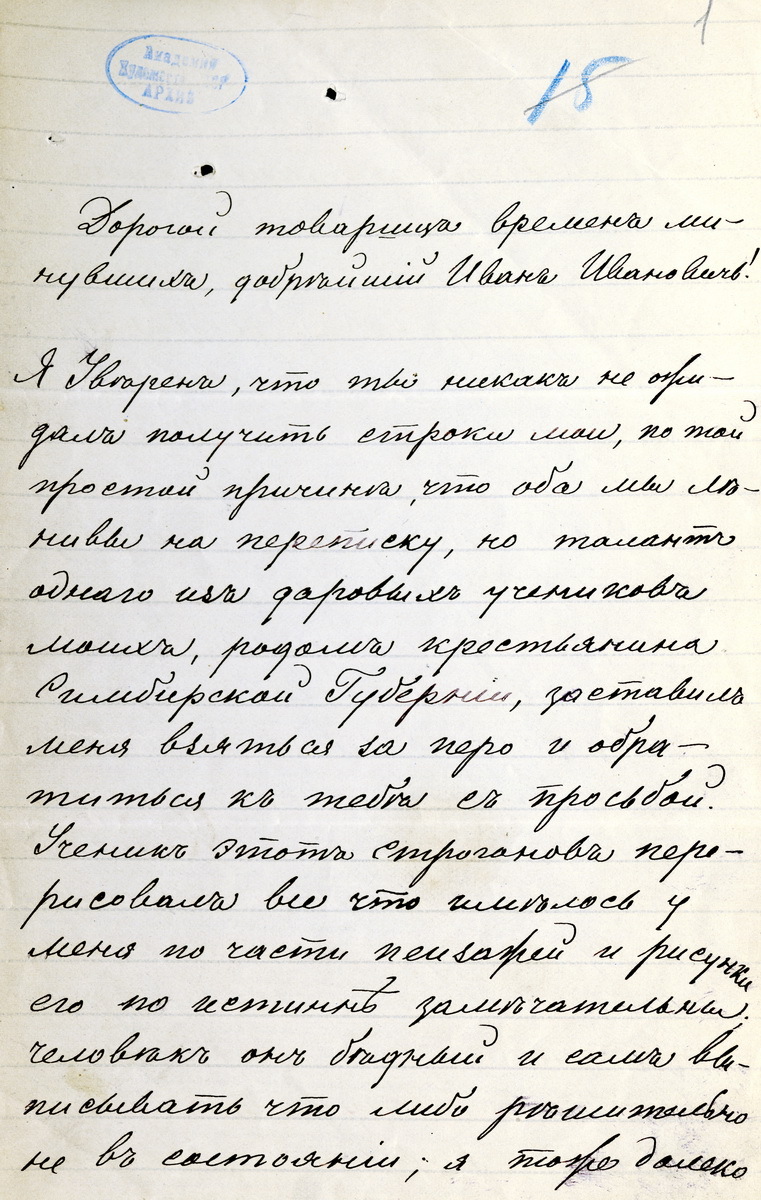 1
Академия
АРХИВ
15
Дорогой товарищъ временъ ми-
нувшихъ, добрѣйшій Иванъ Ивановичъ!
Я Увѣренъ, что ты никакъ не ожи-
далъ получить строки мои, по той
простой причинѣ, что оба мы лѣ-
нивы на переписку, но талантъ
однаго изъ даровыхъ учениковъ
моихъ, родомъ крестьянина
Симбирской Губерніи, заставилъ
меня взяться за перо и обра-
титься къ тебѣ съ просьбой.
Ученикъ этотъ Строгановъ пере-
рисовалъ все что имѣлось у
меня по части пейзажей и рисунки
его по истиннѣ замѣчательны.
Человѣкъ онъ бѣдный и самъ вы-
писывать что либо рѣшительно
не въ состояніи; я тоже далеко